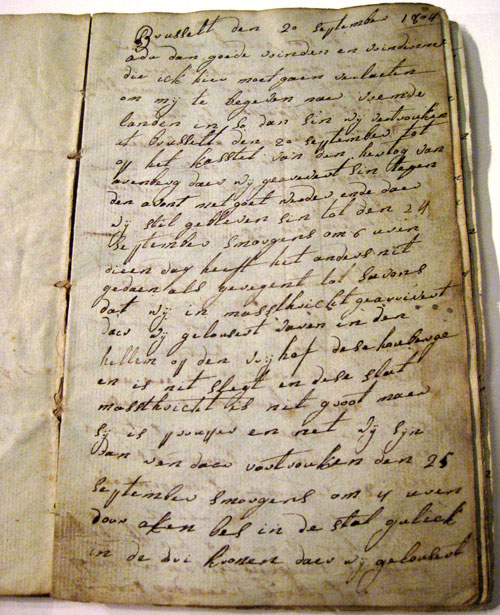 Brussell den 20 september 1804
ade dan goede vrinden en vrindinne
die ick hier moet gaen verlaeten
om mij te begeven naer vremde
landen in dan sin wij vertrocken
ut Brussell den 20 september tot
op het kasteel van den hertog van
arenberg daer wij gearivert sin tegen
den avont met goet weeder ende daer
wij stil gebleven sin tot den 24
september smorgens om 6 uren
dieen dag heeft het anders nit
gedaen als geregent tot savons
dat wij in mastrickt gearrivert
daer wij gelousert waren in den
hellem op den vrijhof dese herberge
en is nit slegt en dese stat
mastricht is nit groot maer
sij is propper en net wij sijn
dan van daer vertrocken den 25
september smorgens om 4 uren
door aken bes in de stat gulick
in de dri kronen daer wij gelousert